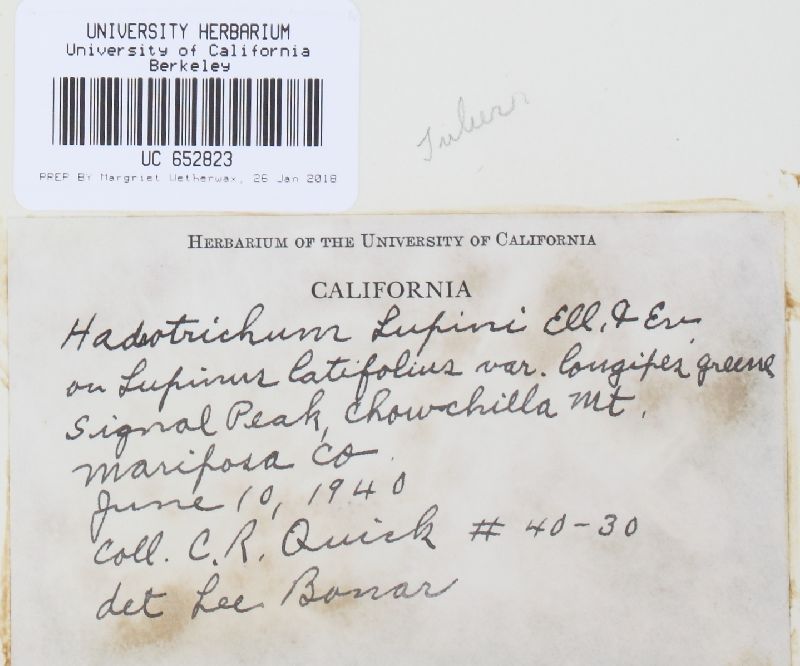 UNIVERSITY HERBARIUM
University of California
Berkeley
UC 652823
PREP BY Margriet Wetherwax, 26 Jan 2018
HERBARIUM OF THE UNIVERSITY OF CALIFORNIA
CALIFORNIA
Hadrotrichum Lupini Ell. & Ev.
on Lupinus latifolius var. longipes greene
Signal Peak, Chowchilla Mt.
Mariposa Co.
June 10, 1940
Coll. C.R. Quick # 40-30
det Lee Bonar